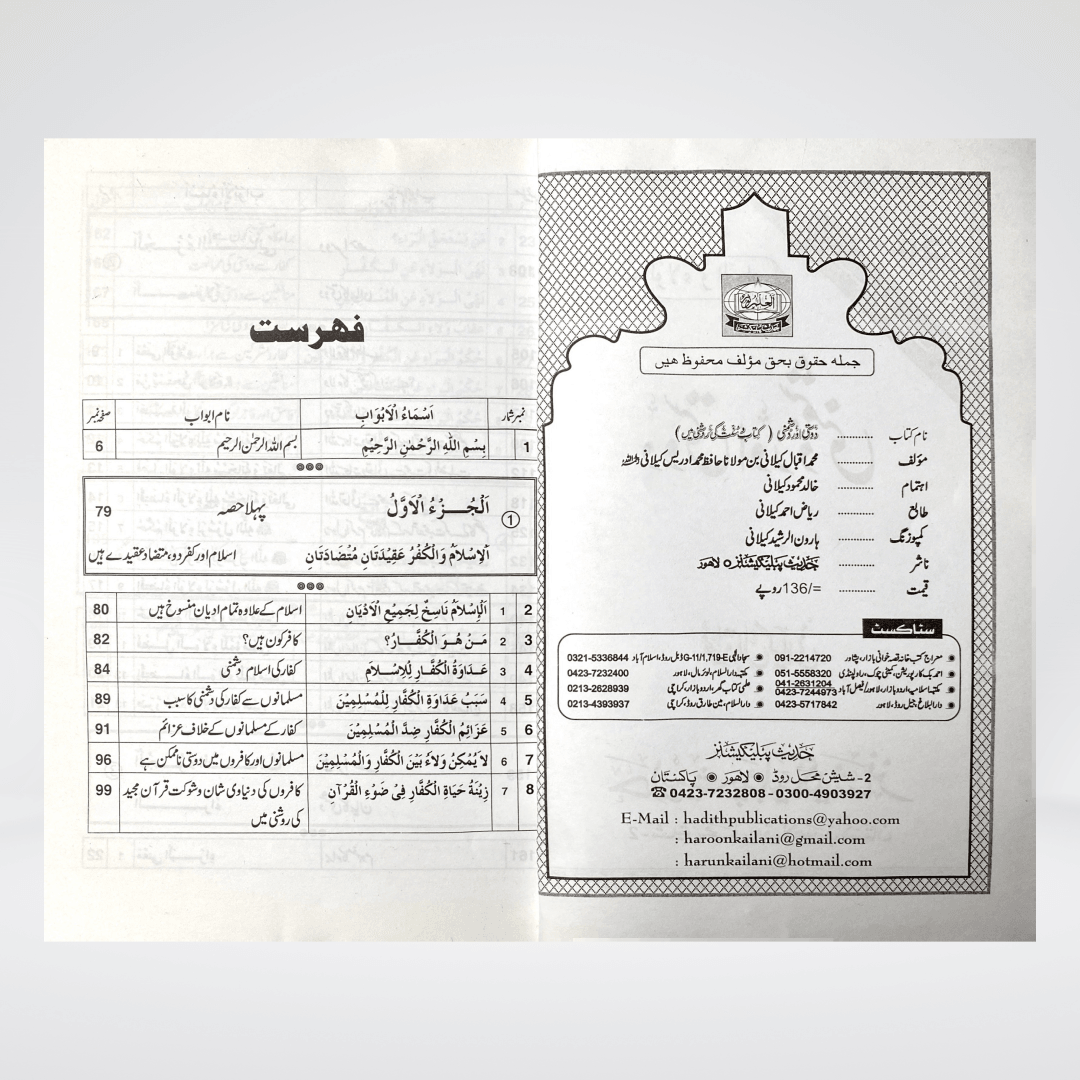 جمله حقوق بحق مؤلف محفوظ هیں
نام کتاب ............ دوستی اور دشمنی (کتاب و سنت کی روشنی میں)
مؤلف ............ محمد اقبال کیلانی بن مولانا حافظ محمد ادریس کیلانی
اہتمام ............ خالد محمود کیلانی
طابع ............ ریاض احمد کیلانی
کمپوزنگ ............ ہارون الرشید کیلانی
ناشر ............ حدیث پبلیکیشنز لاہور
قیمت ............ =/136 روپے
سٹاکسٹ
معراج کتب خانہ قصہ خوانی بازار، پشاور 091-2214720
احمد بک کارپوریشن، کمیٹی چوک، راولپنڈی 051-5558320
مکتبہ اسلامیہ، اردو بازار، لاہور/فیصل آباد 041-2631204 0423-7244973
دارالبلاغ جیل روڈ، لاہور 0423-5717842
G-11/1,719-E ڈبل روڈ، اسلام آباد 0321-5336844
مکتبہ دارالسلام، لوئر مال، لاہور 0423-7232400
علمی کتاب گھر، اردو بازار، کراچی 0213-2628939
دارالسلام، مین طارق روڈ، کراچی 0213-4393937
حدیث پبلیکیشنز
2- شیش محل روڈ ◉ لاهور ◉ پاکستان
☎ 0423-7232808 - 0300-4903927
E-Mail : hadithpublications@yahoo.com
: haroonkailani@gmail.com
: harunkailani@hotmail.com
فهرست
نمبر شمار اَسْمَاءُ الْاَبْوَابِ نام ابواب صفحہ نمبر
1 بِسْمِ اللّٰهِ الرَّحْمٰنِ الرَّحِيْمِ بسم اللہ الرحمٰن الرحیم 6
① اَلْجُـزْءُ الْاَوَّلُ پہلا حصہ 79
اَلْاِسْلَامُ وَالْكُفْرُ عَقِيْدَتَانِ مُتَضَادَتَانِ اسلام اور کفر دو، متضاد عقیدے ہیں
2 1 اَلْاِسْلَامُ نَاسِخٌ لِجَمِيْعِ الْاَدْيَانِ اسلام کے علاوہ تمام ادیان منسوخ ہیں 80
3 2 مَنْ هُوَ الْكُفَّـارُ؟ کافر کون ہیں؟ 82
4 3 عَدَاوَةُ الْكُفَّارِ لِلْاِسْـلَامِ کفار کی اسلام دشمنی 84
5 4 سَبَبُ عَدَاوَةِ الْكُفَّارِ لِلْمُسْلِمِيْنَ مسلمانوں سے کفار کی دشمنی کا سبب 89
6 5 عَزَائِمُ الْكُفَّارِ ضِدَّ الْمُسْلِمِيْنَ کفار کے مسلمانوں کے خلاف عزائم 91
7 6 لَا يُمْكِنُ وَلَاءٌ بَيْنَ الْكُفَّارِ وَالْمُسْلِمِيْنَ مسلمانوں اور کافروں میں دوستی ناممکن ہے 96
8 7 زِيْنَةُ حَيَاةِ الْكُفَّارِ فِىْ ضَوْءِ الْقُرْآنِ کافروں کی دنیاوی شان و شوکت قرآن مجید 99
کی روشنی میں